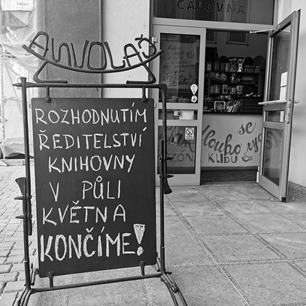 ČAJOVNA
BUVOLA
ROZHODNUTÍM
ŘEDITELSTVÍ
KNIHOVNY
V PŮLI
KVĚTNA
KONČÍME!
se
KLIDU